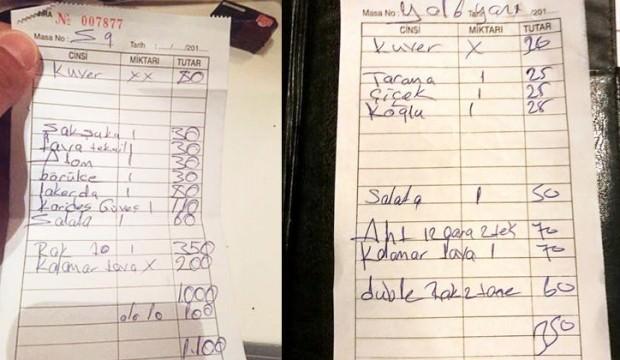 № 007877
Masa No: S9 Tarih : / /201
CİNSİ MİKTARI TUTAR
Kuver xx 80
Şakşuka 1 30
Tava 1 30
Atom 1 30
börülce 1 30
lakerda 1 80
Karides Güveç 1 110
Salata 1 60
Rak 70 1 350
Kalamar tava x 200
1000
100
1.100
Masa No: Tarih : / /201
CİNSİ MİKTARI TUTAR
Kuver x
Tarama 1 25
Çiçek 1 25
Köğlu 1 25
Salata 1 50
Aht ızgara 2 tek 70
Kalamar tava 1 70
duble rak 2 tane 60
350